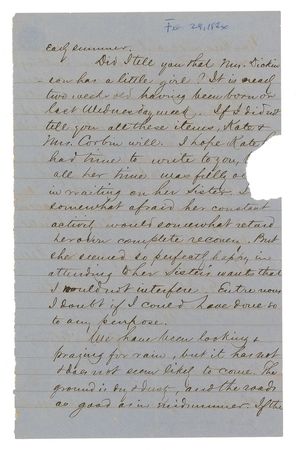 early summer.
Did I tell you that Mrs. Dickin
son has a little girl? It is nearly
two weeks old having been born on
last Wednesday week. If I did not
tell you all these items, Kate &
Mrs. Corbin will. I hope Kate
had time to write to you,
all her time was fully
in waiting on her Sister. I
somewhat afraid her constant
activity would somewhat retard
her own complete recovery. But
she seemed so perfectly happy in
attending to her Sister's wants that
I would not interfere. Entre nous
I doubt if I could have done so
to any purpose.
We have been looking &
praying for rain, but it has not
& does not seem likely to come. The
ground is dry & dusty, and the roads
as good as in midsummer. If the